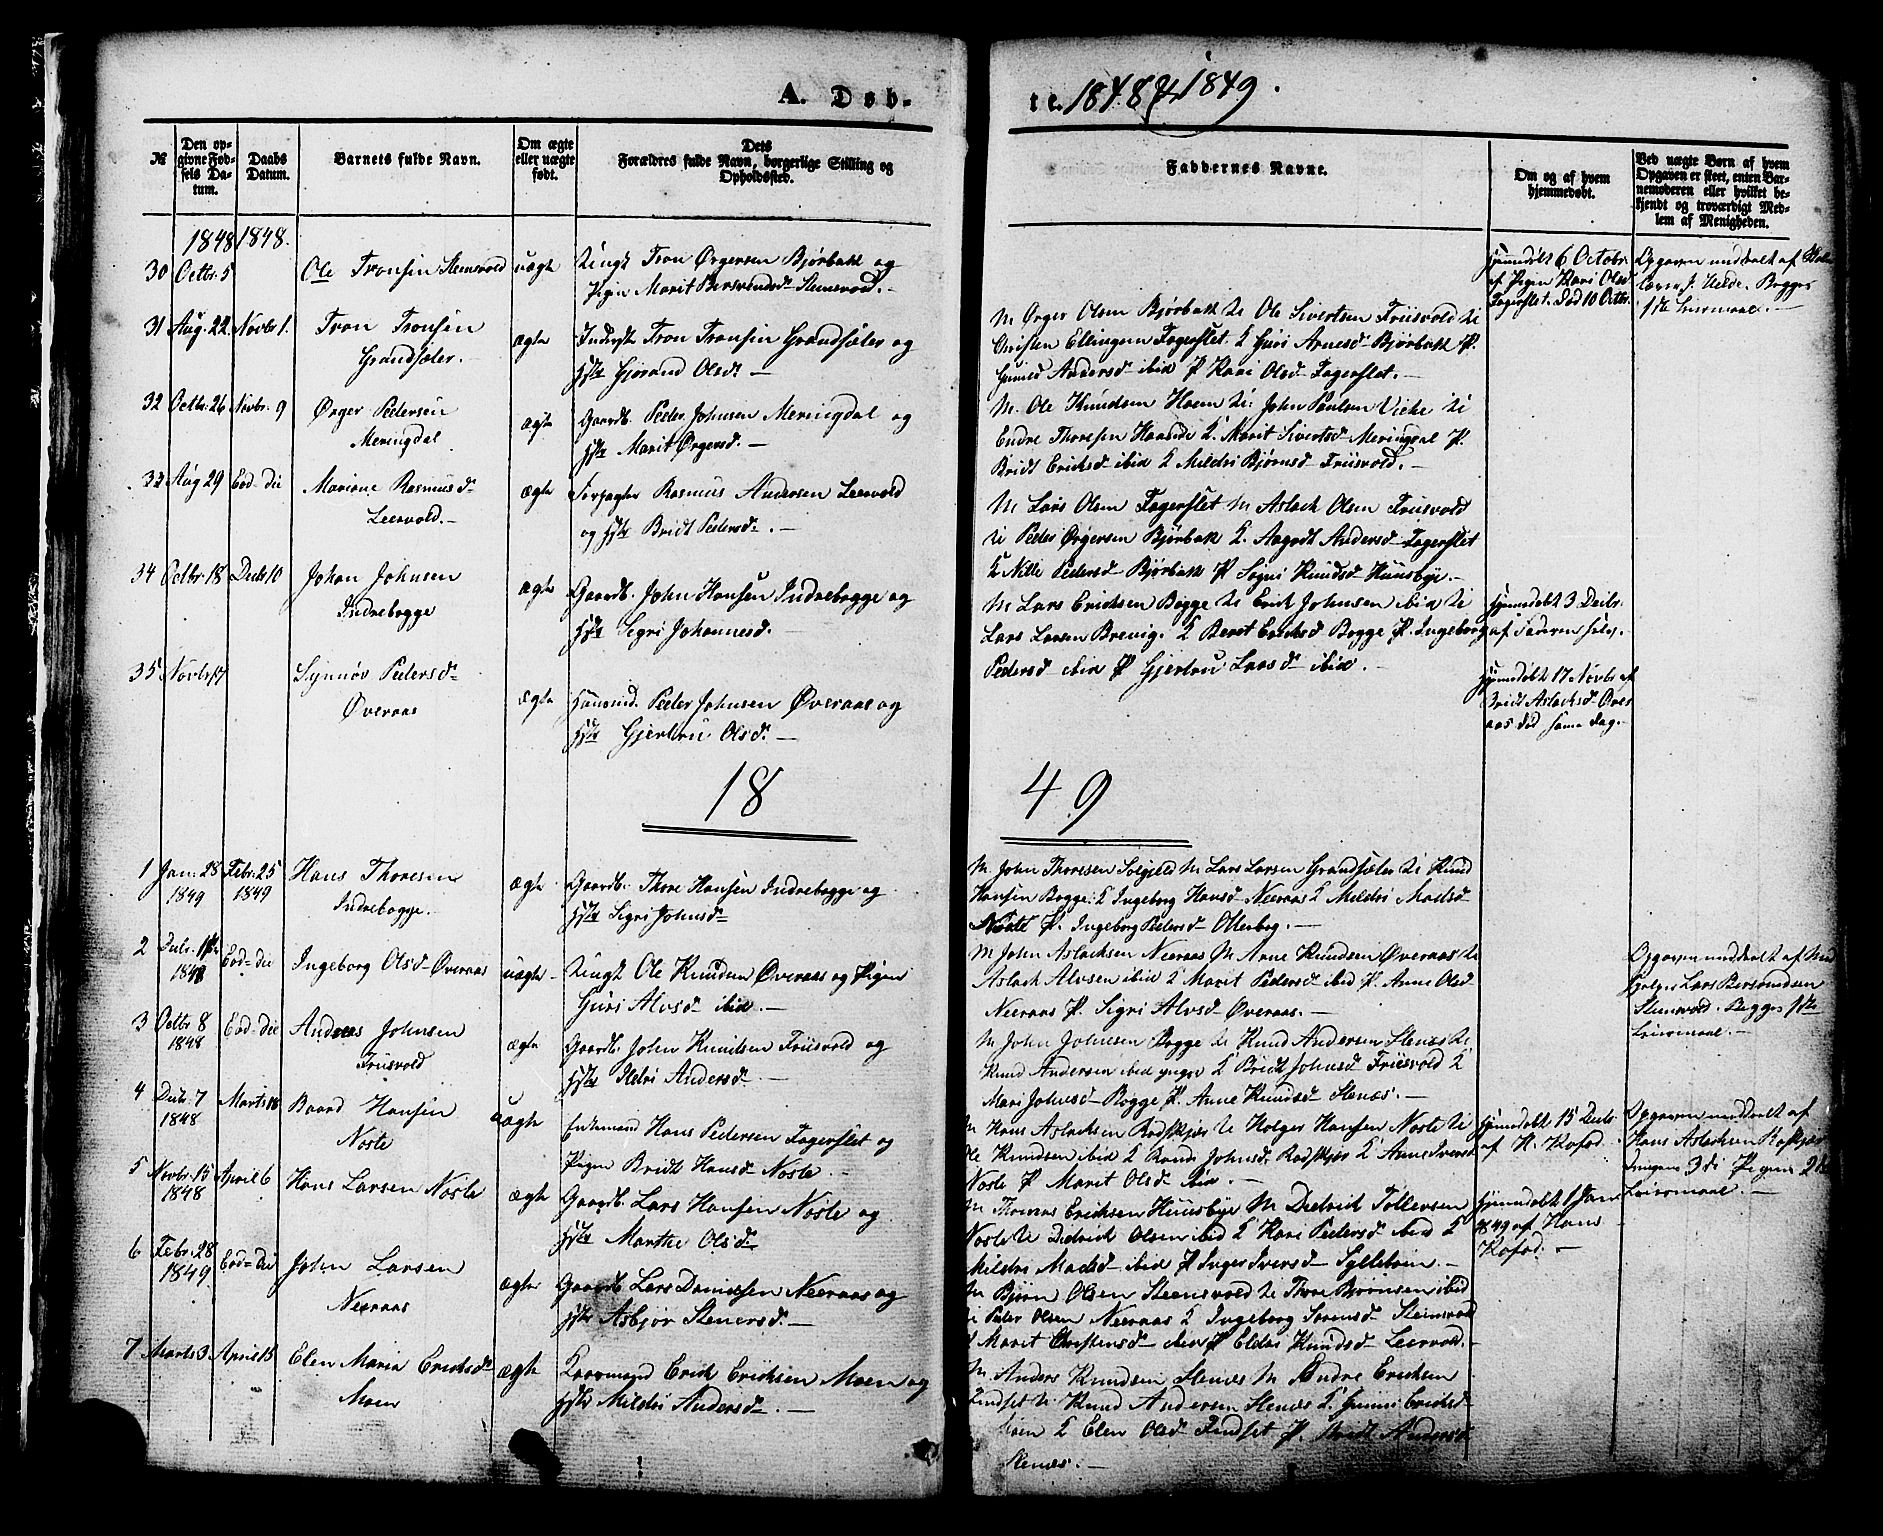 A. Døb-
te. 1848 & 1849.
№
Den op-
givne Fød-
sels Da-
tum.
Daabs
Datum.
Barnets fulde Navn.
Om ægte
eller uægte
født.
Dets
Forældres fulde Navn, borgerlige Stilling og
Opholdssted.
Faddernes Navne.
Om og af hvem
hjemmedøbt.
Ved uægte Børn af hvem
Opgaven er skeet, enten Bar-
nemoderen eller hvilket be-
kjendt og troværdigt Med-
lem af Menigheden.
1848 1848.
30 Octbr. 5 Ole Tronsen Stensvold uægte Ungk. Tron Ørgersen Bjørbak og
Pigen Marit Bersvendsd. Stensvold. —
Hjemmedøbt 6 Octobr.
af Pigen Kari Olsd.
Fagerslet. Død 10 Octbr.
Opgaven meddealt af
1ste Leiermaal. —
31 Aug. 22. Novbr 1. Tron Tronsen
Grandsæter. —
ægte Tron Tronsen Grandsæter og
Hstr Gjørand Olsd. —
M Ørger Olsen Bjørbak U Ole Sivertsen Friisvold U
Christen Ellingsen Fagerslet. K Guri Arnesd. Bjørbak P.
Andersd. ibid P Kari Olsd. Fagerslet. —
32 Octbr. 26 Novbr. 9 Ørger Pedersen
Meringdal
ægte Gaardb. Peder Johnsen Meringdal og
Hstr Marit Ørgersd. —
M. Ole Knudsen Hoem U. John Paulsen Vike U
Endre Thoresen K. Marit Sivertsd. Meringdal P.
Bridt Ericksd ibid K Mildri Bjørnsd. Friisvold. —
33 Aug 29 Eod-die Mariane Rasmusd.
Leervold. —
ægte Forpagter Rasmus Andersen Leervold
og Hstr Bridt Pedersd. —
M Lars Olsen Fagerslet M Aslack Olsen Friisvold
U Peder Ørgersen Bjørbak K. Aagodt Andersd. Fagerslet
K Nille Pedersd. Bjørbak P Sogni Knudsd. Huusbye. —
34 Octbr. 18 Decbr 10 Johan Johnsen
Indrebogge
ægte Gaardb. John Hansen Indrebogge og
Hstr Sigri Johannesd. —
M Lars Ericksen Bogge U Erick Johnsen ibid U
Lars Larsen Brevig. K Beret Ericksd Bogge P. Ingeborg
Pedersd ibid P Gjertru Larsd. ibid. —
Hjemmdøbt 3 Decbr.
af Faderen selv.
35 Novbr 17 Synnøv Pedersd.
Øveraas
ægte Huusmd. Peder Johnsen Øveraas og
Hstr Gjertru Olsd. —
Hjemmdøbt 17 Novbr af
Bridt Aslacksd. Øver
aas død same dag. —
18 49
1 Jan: 28 Febr. 25
1849 1849
Hans Thoresen
Indrebogge.
ægte Gaardb. Thore Hansen Indrebogge og
Hstr Sigri Johnsd.
M John Thoresen Solgilde M Lars Larsen Grandsæter U Knud
Hansen Bogge. K Ingeborg Hansd. Neeraas K Mildri Madsd.
Noste P. Ingeborg Pedersd. —
2 1848 Eod=die Ingeborg Olsd. Øveraas uægte Ungk. Ole Knudsen Øveraas og Pigen
Guri Alvsd. ibid. —
M John Aslacksen Neeraas M Arne Knudsen Øveraas U
Aslack Alvsen ibid K Marit Pedersd. ibid P. Anne Olsd.
Neeraas P. Sigri Alvsd. Øveraas. —
Opgaven meddealt af
Lars Bersvendsen
Stensvold. Begges 1ste
Leiermaal. —
3 Octbr 8
1848
Eod=die Andreas Johnsen
Friisvold
ægte Gaardb. John Knudsen Friisvold og
Hstr Ildri Andersd. —
M John Johnsen Bogge U Knud Andersen Stenes U
Knud Andersen ibid yngre K Bridt Johnsd Friisvold K
Mari Johnsd. Bogge P. Anne Knudsd. Stenes. —
4 Decbr. 7
1848
Marts 18 Baard Hansen
Noste
uægte Enkemand Hans Pedersen Fagerslet og
Pigen Bridt Hansd. Noste. —
M Hans Aslacksen Rødskjær U Holger Hansen Noste U
Ole Knudsen ibid K Johnsd. Rødskjær K Anne Iversd
Noste P Marit Olsd ibid. —
Hjemmdøbt 15 Decbr
af H. Kofod. —
Opgaven meddealt af
Hans Aslacksen
3die Pigens 2de
Leiermaal. —
5 Novbr. 15
1848
April 6 Hans Larsen Noste ægte Gaardb. Lars Hansen Noste og
Hstr Marthe Olsd.
M Thomas Ericksen Huusbye M Diedrick Tollevsen
Noste U Didrick Olsen ibid K Kari Pedersd. ibid K
Mildri Madsd. ibid P Inger Iversd. —
Hjemmdøbt 1 Jan.
1849 af Hans
Kofod. —
6 Febr. 28
1849
Eod=die John Larsen
Neeraas
ægte Gaardb. Lars Danielsen Neeraas og
Hstr Asbjør Stenersd. —
M Bjørn Olsen Steensvold U Thore Bjørnsen ibid
U Peder Olsen Neeraas K Ingeborg Sørensd. Stensvold
K Marit Christensd. ibid P Eldri Knudsd. Leervold. —
7 Marts 3 April 15 Elen Maria Ericksd.
Moen
ægte Erick Ericksen Moen og
Hstr Mildri Andersd. —
M Anders Knudsen Stenes M Endre Ericksen
Findset U Knud Andersen Stenes K. Ericksd
Moen K Elen Olsd. Findset P. Bridt Andersd.
Stenes. —